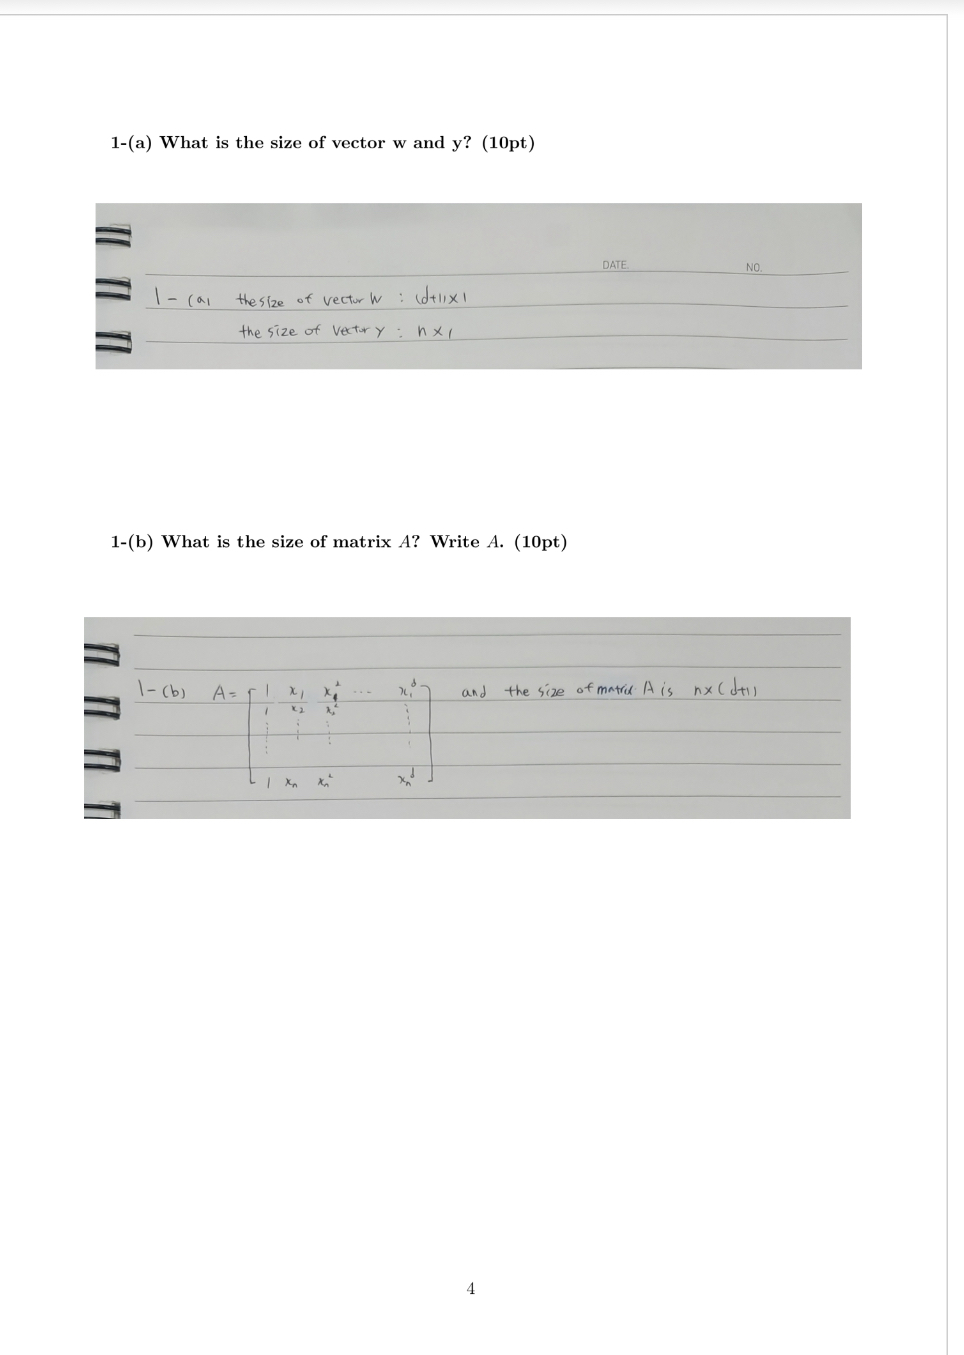 1-(a) What is the size of vector w and y? (10pt)
DATE NO.
1-(a) the size of vector w : (d+1)×1
the size of vector y : n×1
1-(b) What is the size of matrix A? Write A. (10pt)
1-(b) A= [ 1 x₁ x₁² ... x₁ᵈ ] and the size of matrix A is n×(d+1)
1 x₂ x₂²
1 xₙ xₙ² xₙᵈ
4